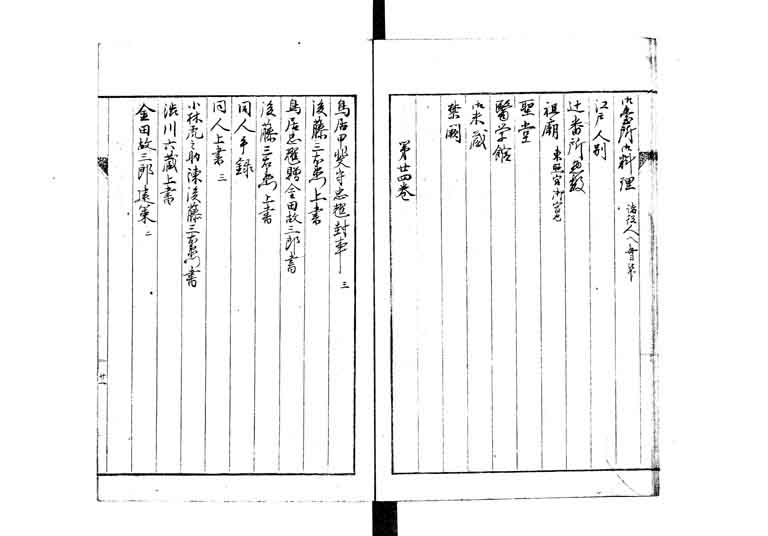 御臺所御料理
江戸人別
辻番所
祖廟
聖堂
醫学館
御米蔵
禁闕
第廿四巻
鳥居甲斐守忠耀封事 三
後藤三右衛門上書
鳥居忠耀贈金田故三郎書
後藤三右衛門上書
同人手録
同人上書 三
小林虎之助陳後藤三右衛門書
渋川六蔵上書
金田故三郎遠策 二
廿一